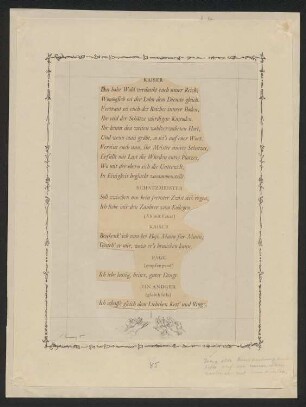 KAISER
Das hohe Wohl verdankt euch unser Reich;
Womöglich sei der Lohn dem Dienste gleich.
Vertraut sei euch des Reiches innrer Boden,
Ihr seid der Schätze würdigste Kustoden.
Ihr kennt den weiten wohlverwahrten Hort,
Und wenn man gräbt, so sei's auf euer Wort.
Vereint euch nun, ihr Meister unsres Schatzes,
Erfüllt mit Lust die Würden eures Platzes,
Wo mit der obern sich die Unterwelt,
In Einigkeit beglückt zusammenstellt.
SCHATZMEISTER
Soll zwischen uns kein fernster Zwist sich regen,
Ich liebe mir den Zaubrer zum Kollegen.
(Ab mit Faust)
KAISER
Beschenk' ich nun bei Hof, Mann für Mann,
Gesteh' er mir, wozu er's brauchen kann.
PAGE
(empfangend)
Ich lebe lustig, heiter, guter Dinge.
EIN ANDRER
(gleichfalls)
Ich schaffe gleich dem Liebchen Kett' und Ringe.